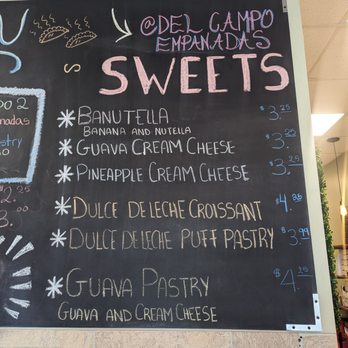 @DEL CAMPO
EMPANADAS
SWEETS
* BANUTELLA $3.25
BANANA AND NUTELLA
* GUAVA CREAM CHEESE $3.25
* PINEAPPLE CREAM CHEESE $3.25
* DULCE DE LECHE CROISSANT
* DULCE DE LECHE PUFF PASTRY $3.99
* GUAVA PASTRY $4.25
GUAVA AND CREAM CHEESE
2.25
3.00